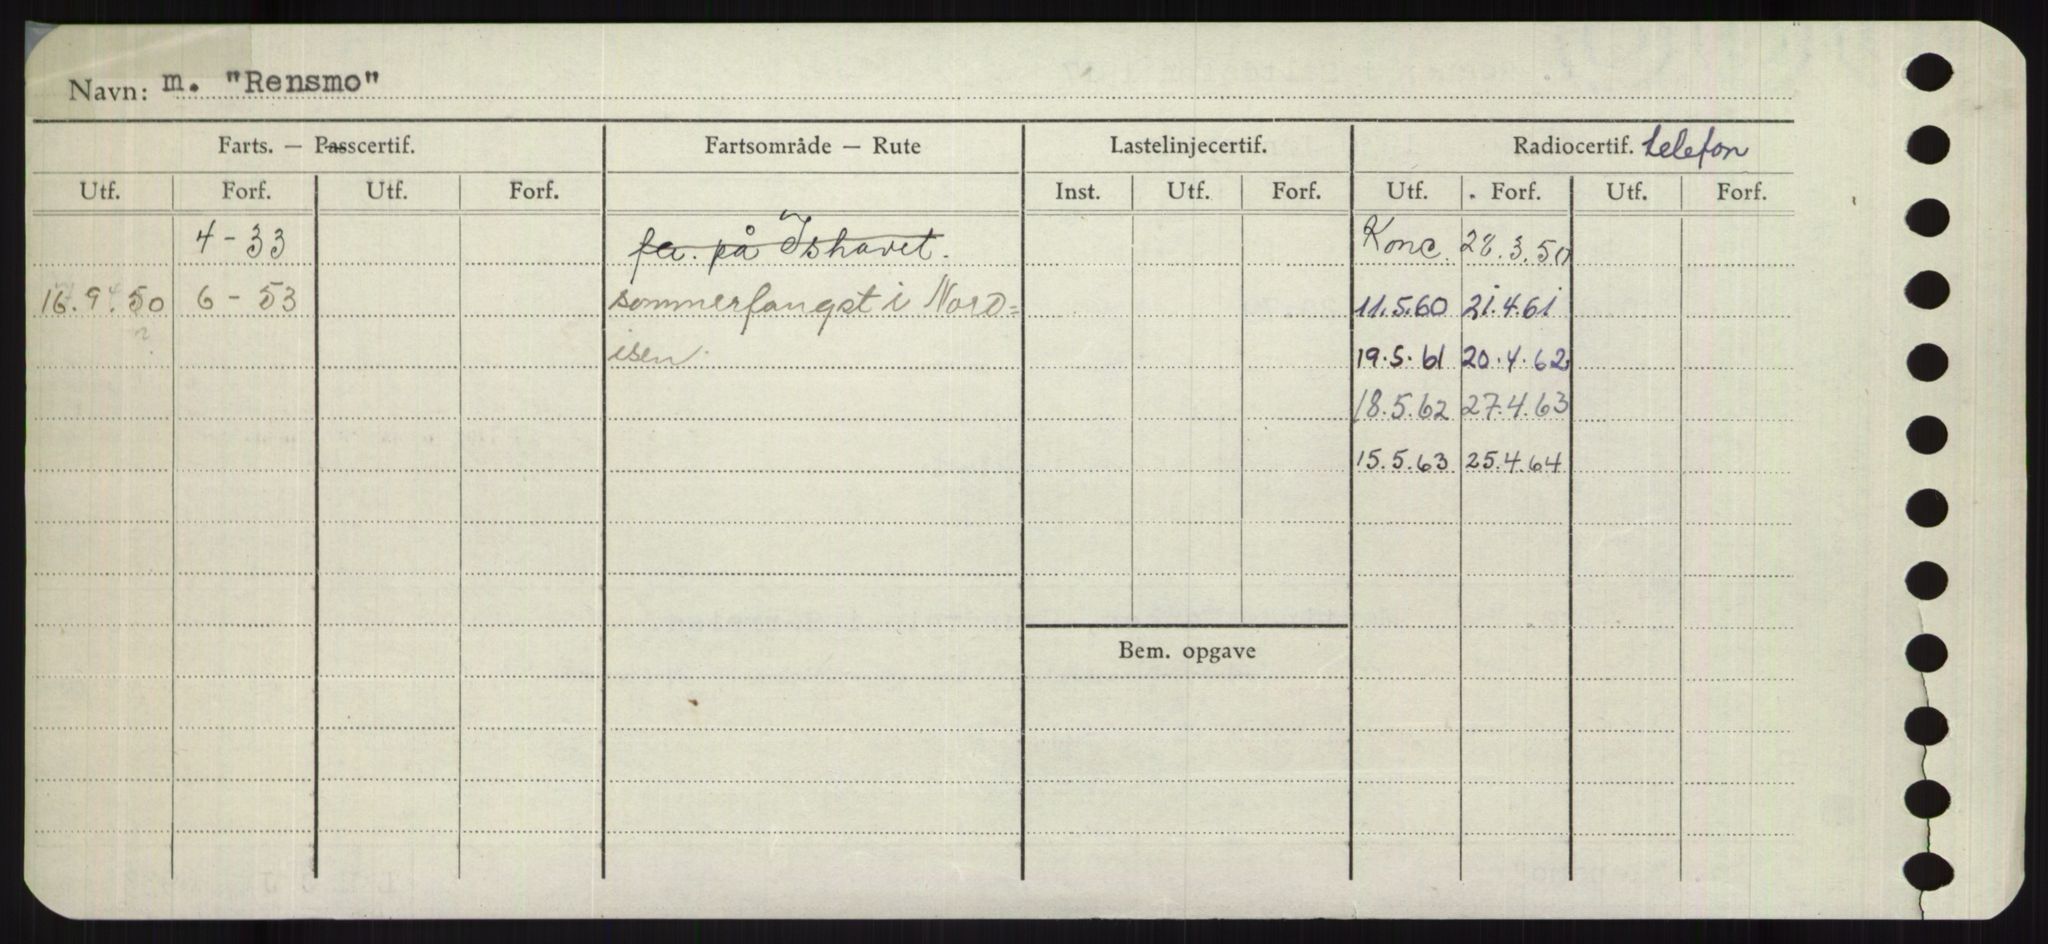 Navn: m. "Rensmo"
Farts. — Passcertif. Fartsområde — Rute Lastelinjecertif. Radiocertif. telefon
Utf. Forf. Utf. Forf. Inst. Utf. Forf. Utf. Forf. Utf. Forf.
4 - 33 på Ishavet. Konc. 28.3.50
16.9.50 6 - 53 sommerfangst i Nord= 11.5.60 21.4.61
isen. 19.5.61 20.4.62
18.5.62 27.4.63
15.5.63 25.4.64
Bem. opgave